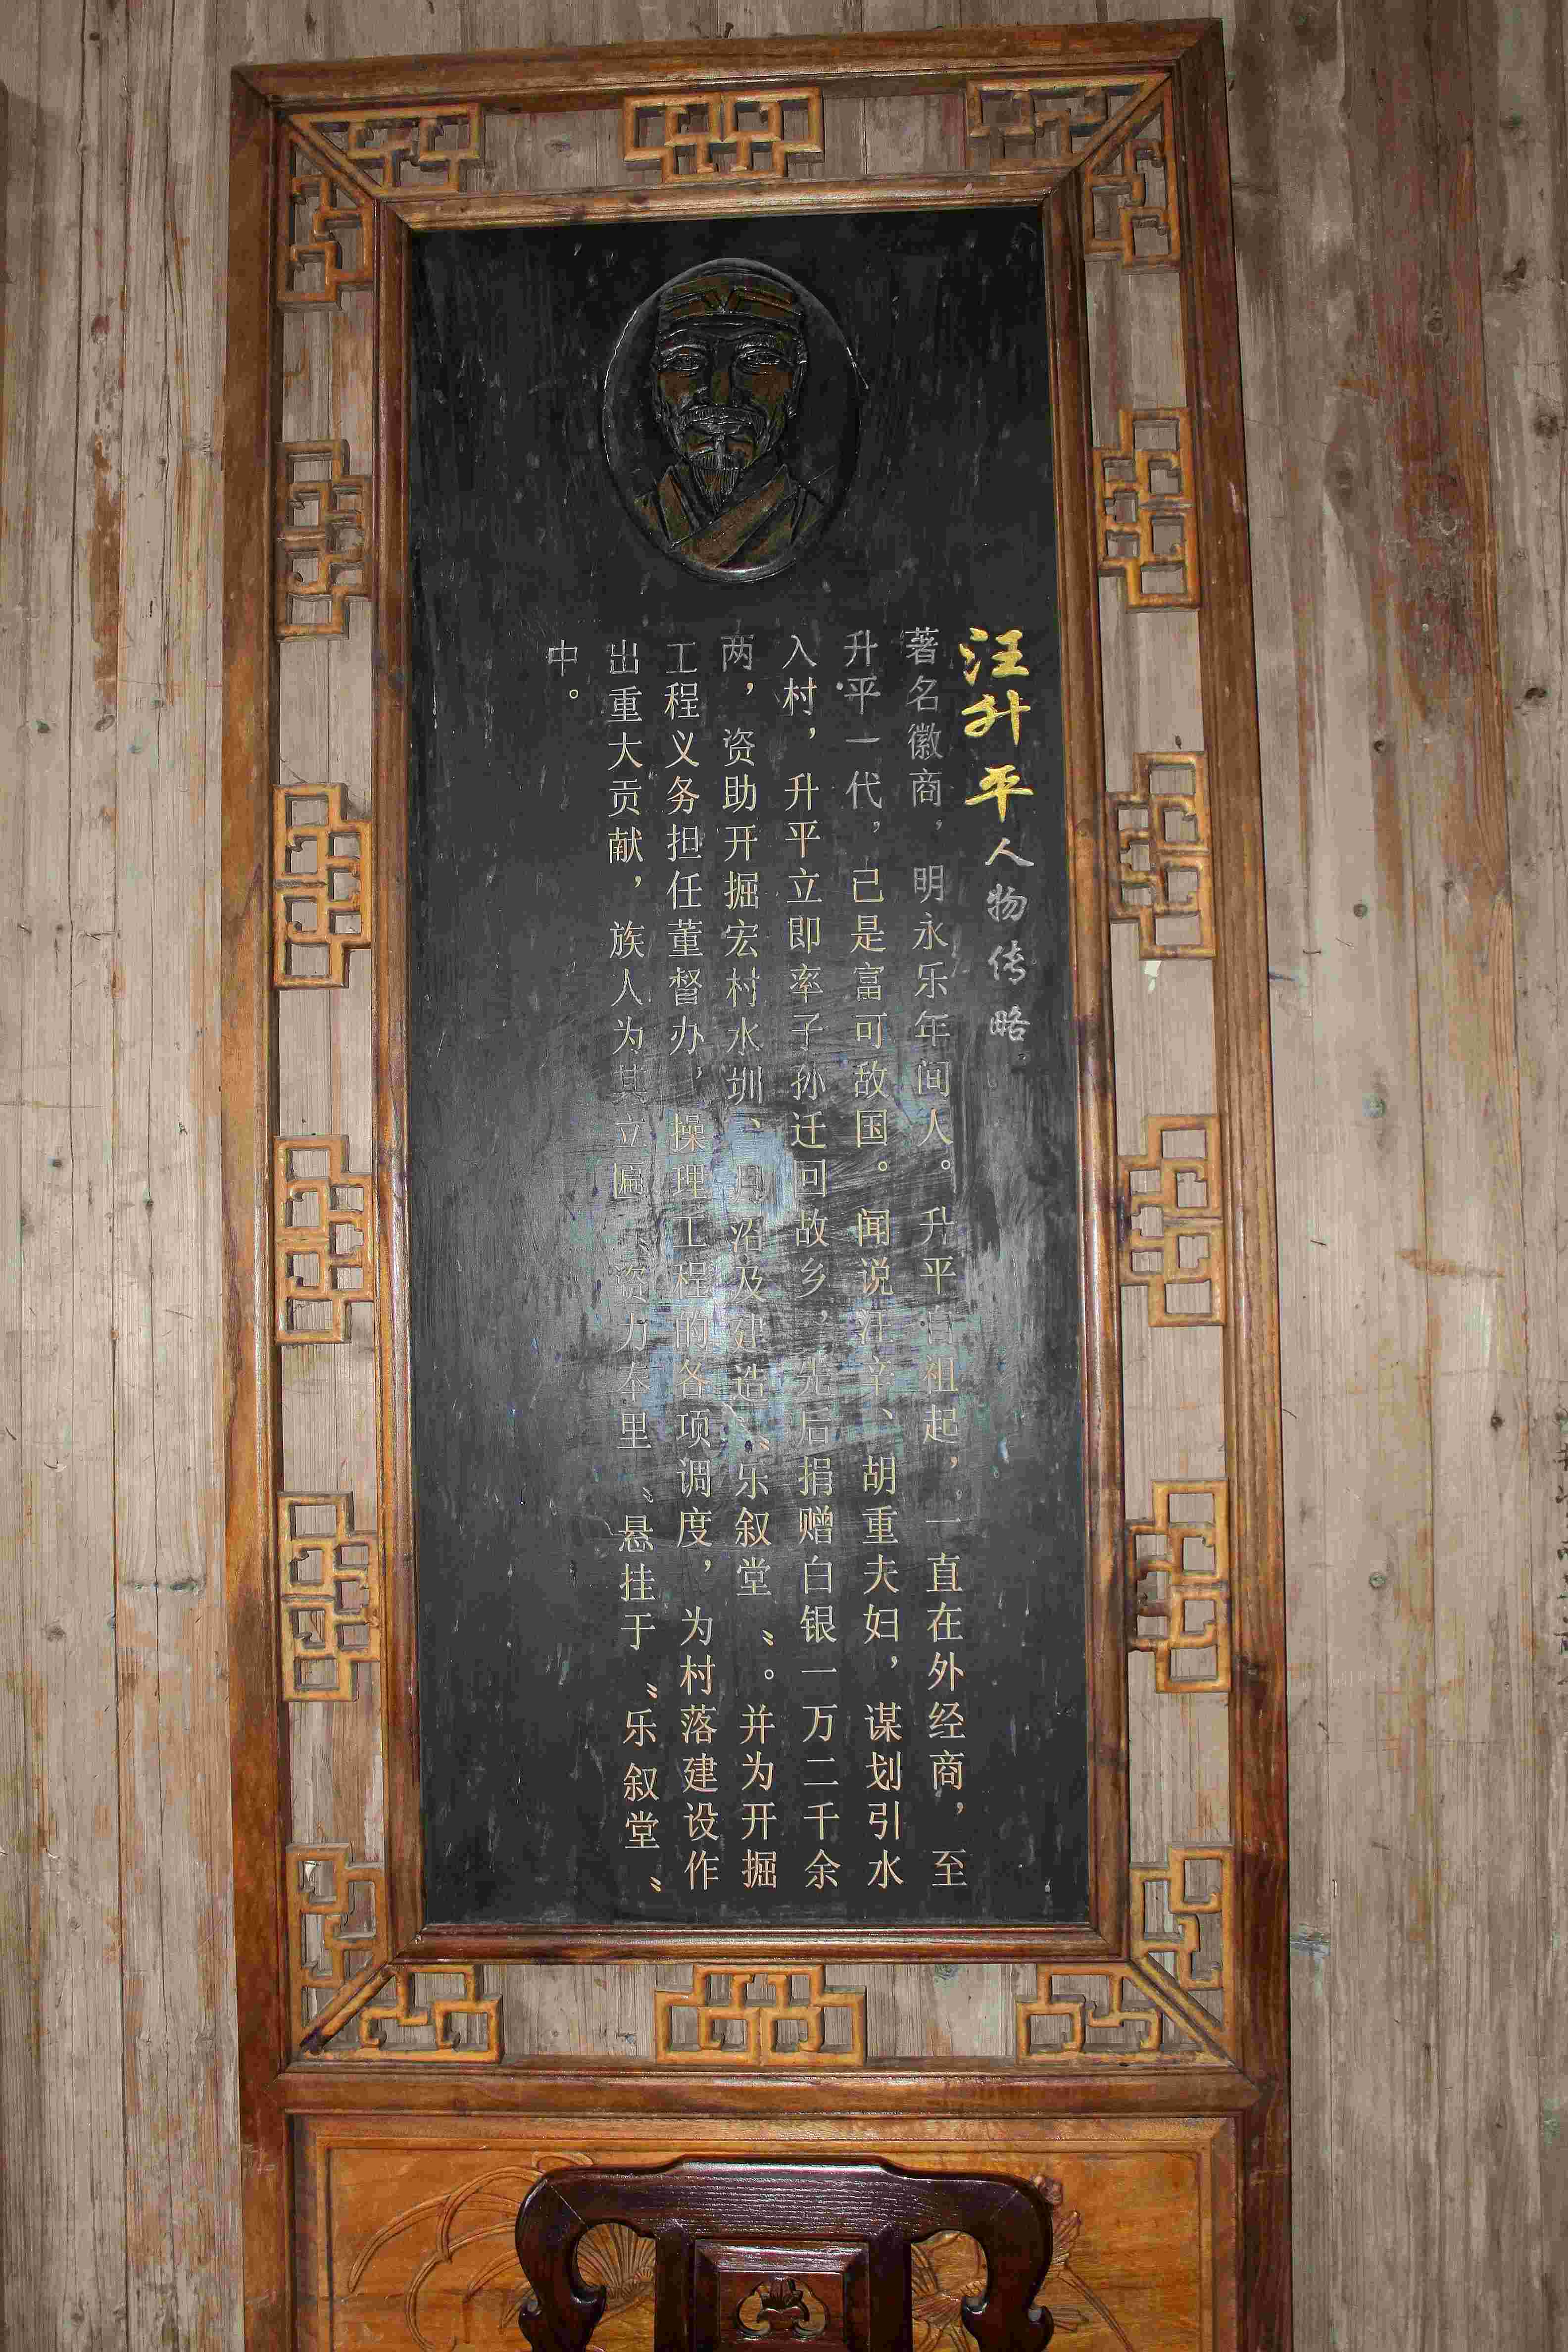 汪升平人物传略
著名徽商，明永乐年间人。升平自祖起，一直在外经商，至
升平一代，已是富可敌国。闻说汪辛、胡重夫妇，谋划引水
入村，升平立即率子孙迁回故乡，先后捐赠白银一万二千余
两，资助开掘宏村水圳、月沼及建造〝乐叙堂〞。并为开掘
工程义务担任董督办，操理工程的各项调度，为村落建设作
出重大贡献，族人为其立匾〝资力奉里〞悬挂于〝乐叙堂〞
中。